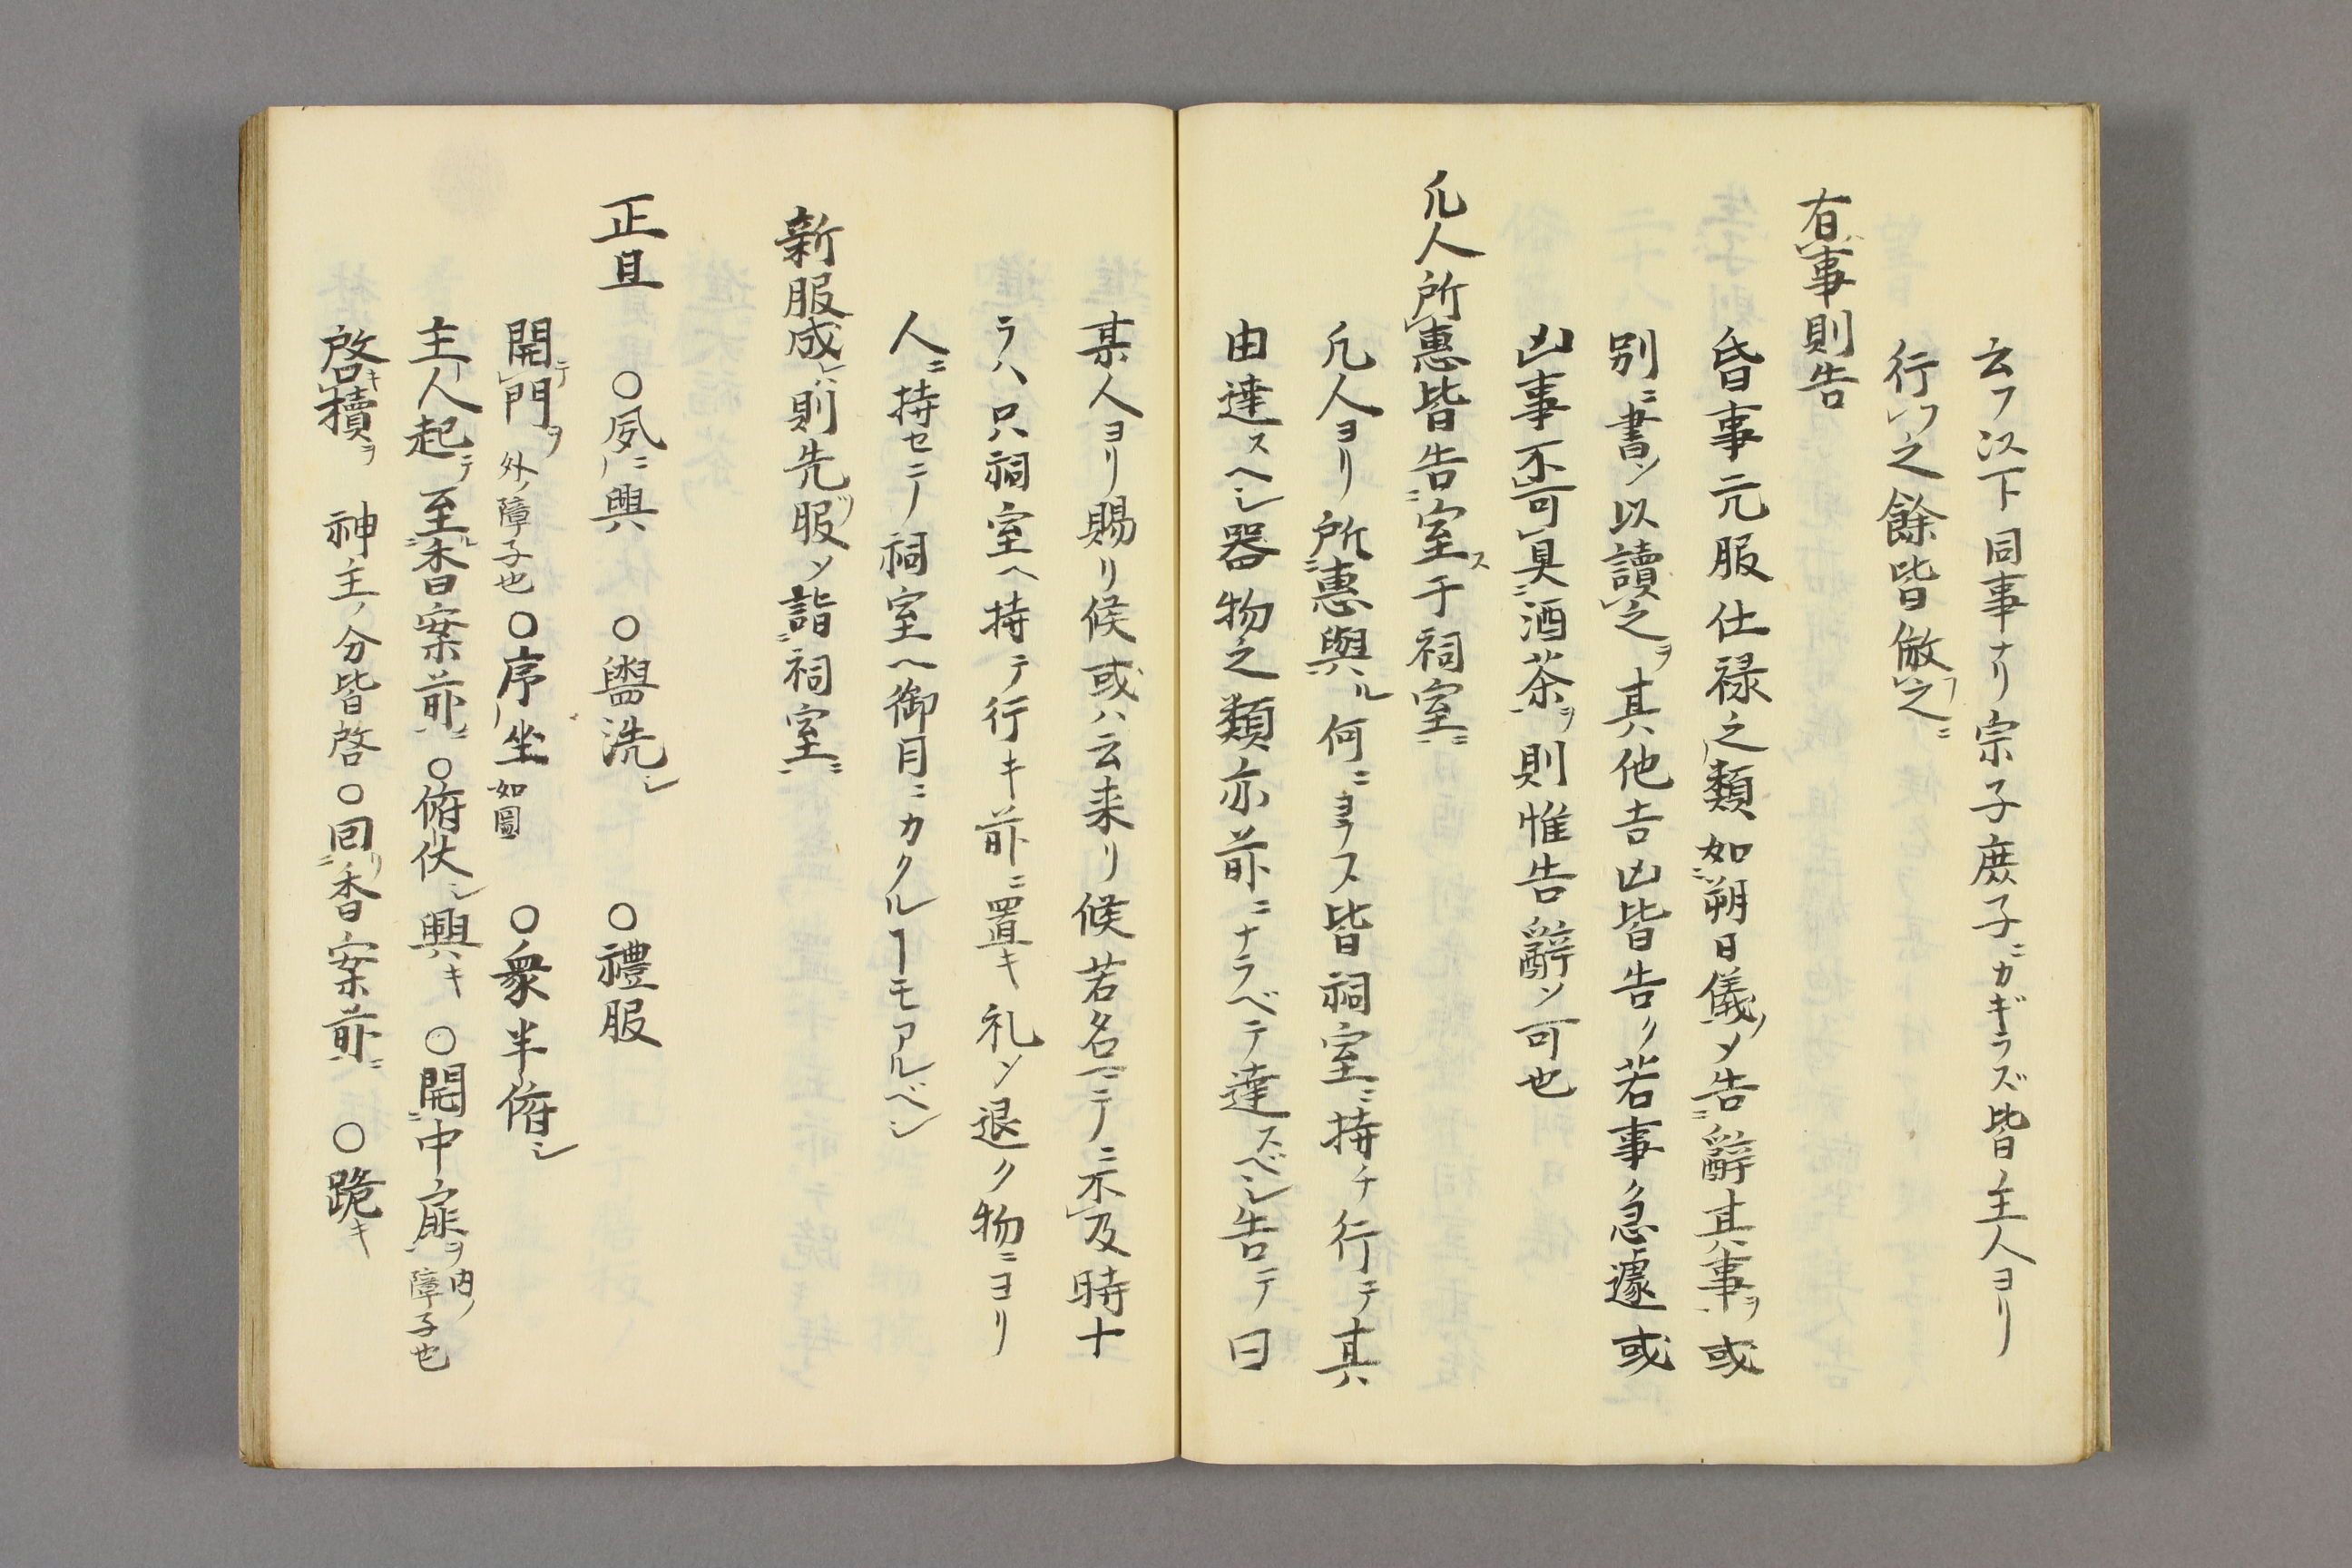 云フ以下同事ナリ宗子庶子ニカギラズ皆主人ヨリ
行フ之餘皆倣フ之ニ
有事則告
昏事元服仕禄之類如朔日儀ノメ告ニ辭其事ヲ或
別ニ書ソ以讀之ヲ其他吉凶皆告ク若事急遽或
凶事不可具酒茶ヲ則惟告辭ソ可也
凡人所惠皆告室ス于祠室ニ
凡人ヨリ所惠與ル何ニヨラス皆祠室ニ持チ行テ其
由達スヘシ器物之類亦前ニナラベテ達スベシ告テ曰
某人ヨリ賜リ候或ハ云来リ候若名ニテニ示及時十
ラハ只祠室ヘ持テ行キ前ニ置キ礼ソ退ク物ニヨリ
人ニ持セニノ祠室ヘ御目ニカクルヿモアルベシ
新服成ハ則先服ソ詣祠室ニ
正旦 〇夙ニ興 〇盥洗シ 〇禮服
開テ門ヲ外ノ障子也〇序坐如圖 〇衆半俯シ
主人起テ至ル香案前ニ〇俯伏シ興キ 〇開中扉ヲ内ノ障子也
啓キ櫝ヲ 神主ノ分皆啓〇回リ香案前ニ 〇跪キ